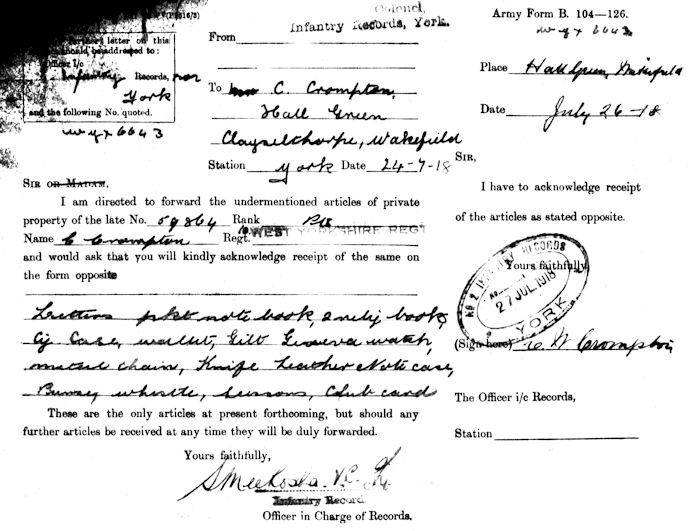 Army Form B. 104—126.
Colonel,
Infantry Records, York.
From
letter on this
should be addressed to:
Officer i/c
Infantry Records,
York
and the following No. quoted.
wyx 6643
To C. Crompton,
Hall Green
Clayselthorpe, Wakefield
Station York Date 24-7-18
SIR OR MADAM,
I am directed to forward the undermentioned articles of private
property of the late No. 59864 Rank Pte
Name C Crompton Regt. WEST YORKSHIRE REGT
and would ask that you will kindly acknowledge receipt of the same on
the form opposite
Letters pkt note book, 2 relig books
Cig Case, wallet, Gilt Geneva watch,
metal chain, Knife Leather Note case,
whistle, scissors, Club card
These are the only articles at present forthcoming, but should any
further articles be received at any time they will be duly forwarded.
Yours faithfully,
S Meekosha. V.C.
Infantry Record
Officer in Charge of Records.
wyx 6643
Place Hall Green, Wakefield
Date July 26-18
SIR,
I have to acknowledge receipt
of the articles as stated opposite.
Yours faithfully,
NO 2 INFANTRY RECORDS
27 JUL 1918
YORK
(Sign here) C W Crompton
The Officer i/c Records,
Station